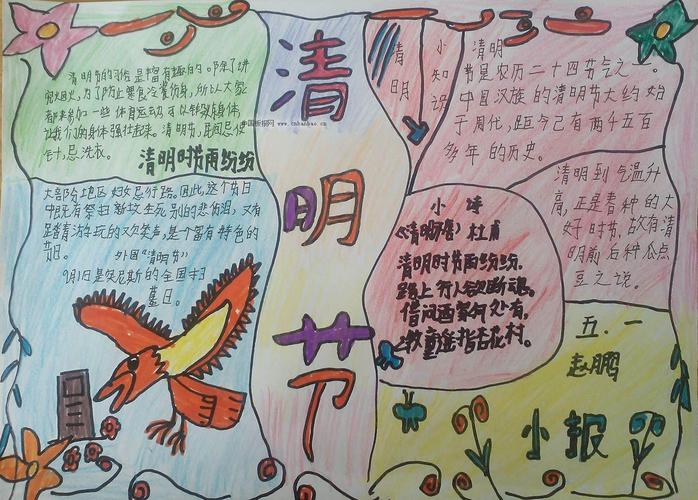 清明节的习俗是丰富有趣的。除了讲
究禁火,为了防止寒食冷餐伤身,所以大家
都来参加一些体育运动,可以锻炼身体,
让我们的身体强壮起来。清明节,民间忌使
针,忌洗衣。
清明时节雨纷纷
中国板报网 www.cnbanbao.cn
大部分地区妇女忌行路。因此,这个节日
中既有祭扫新坟生死别的悲伤泪,又有
踏青游玩的欢笑声,是个富有特色的
节日。
外国“清明节”
9月1日是突尼斯的全国扫
墓日。
清
明
节
清明
小知识
清明
节是农历二十四节气之一。
中国汉族的清明节大约始
于周代,距今已有两千五百
多年的历史。
清明到气温升
高,正是春种的大
好时节,故有清
明前后种瓜点
豆之说。
小诗
《清明》杜甫
清明时节雨纷纷,
路上行人欲断魂。
借问酒家何处有,
牧童遥指杏花村。
五.一
赵鹏
小报